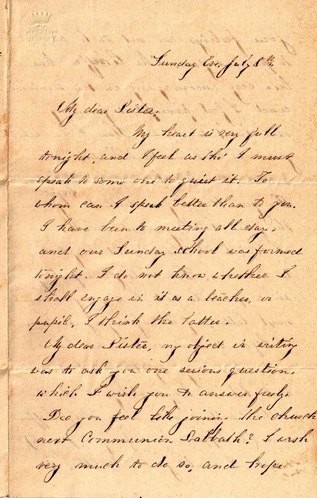 Sunday Eve. July 8th.
My dear Sister,
My heart is very full
tonight, and I feel as tho' I must
speak to some one to quiet it. To
whom can I speak better than to you.
I have been to meeting all day,
and our Sunday school was formed
tonight. I do not know whether I
shall engage in it as a teacher, or
pupil, I think the latter.
My dear Sister, my object in writing
was to ask you one serious question,
which I wish you to answer freely.
Do you feel like joining the church
next Communion Sabbath? I wish
very much to do so, and hope